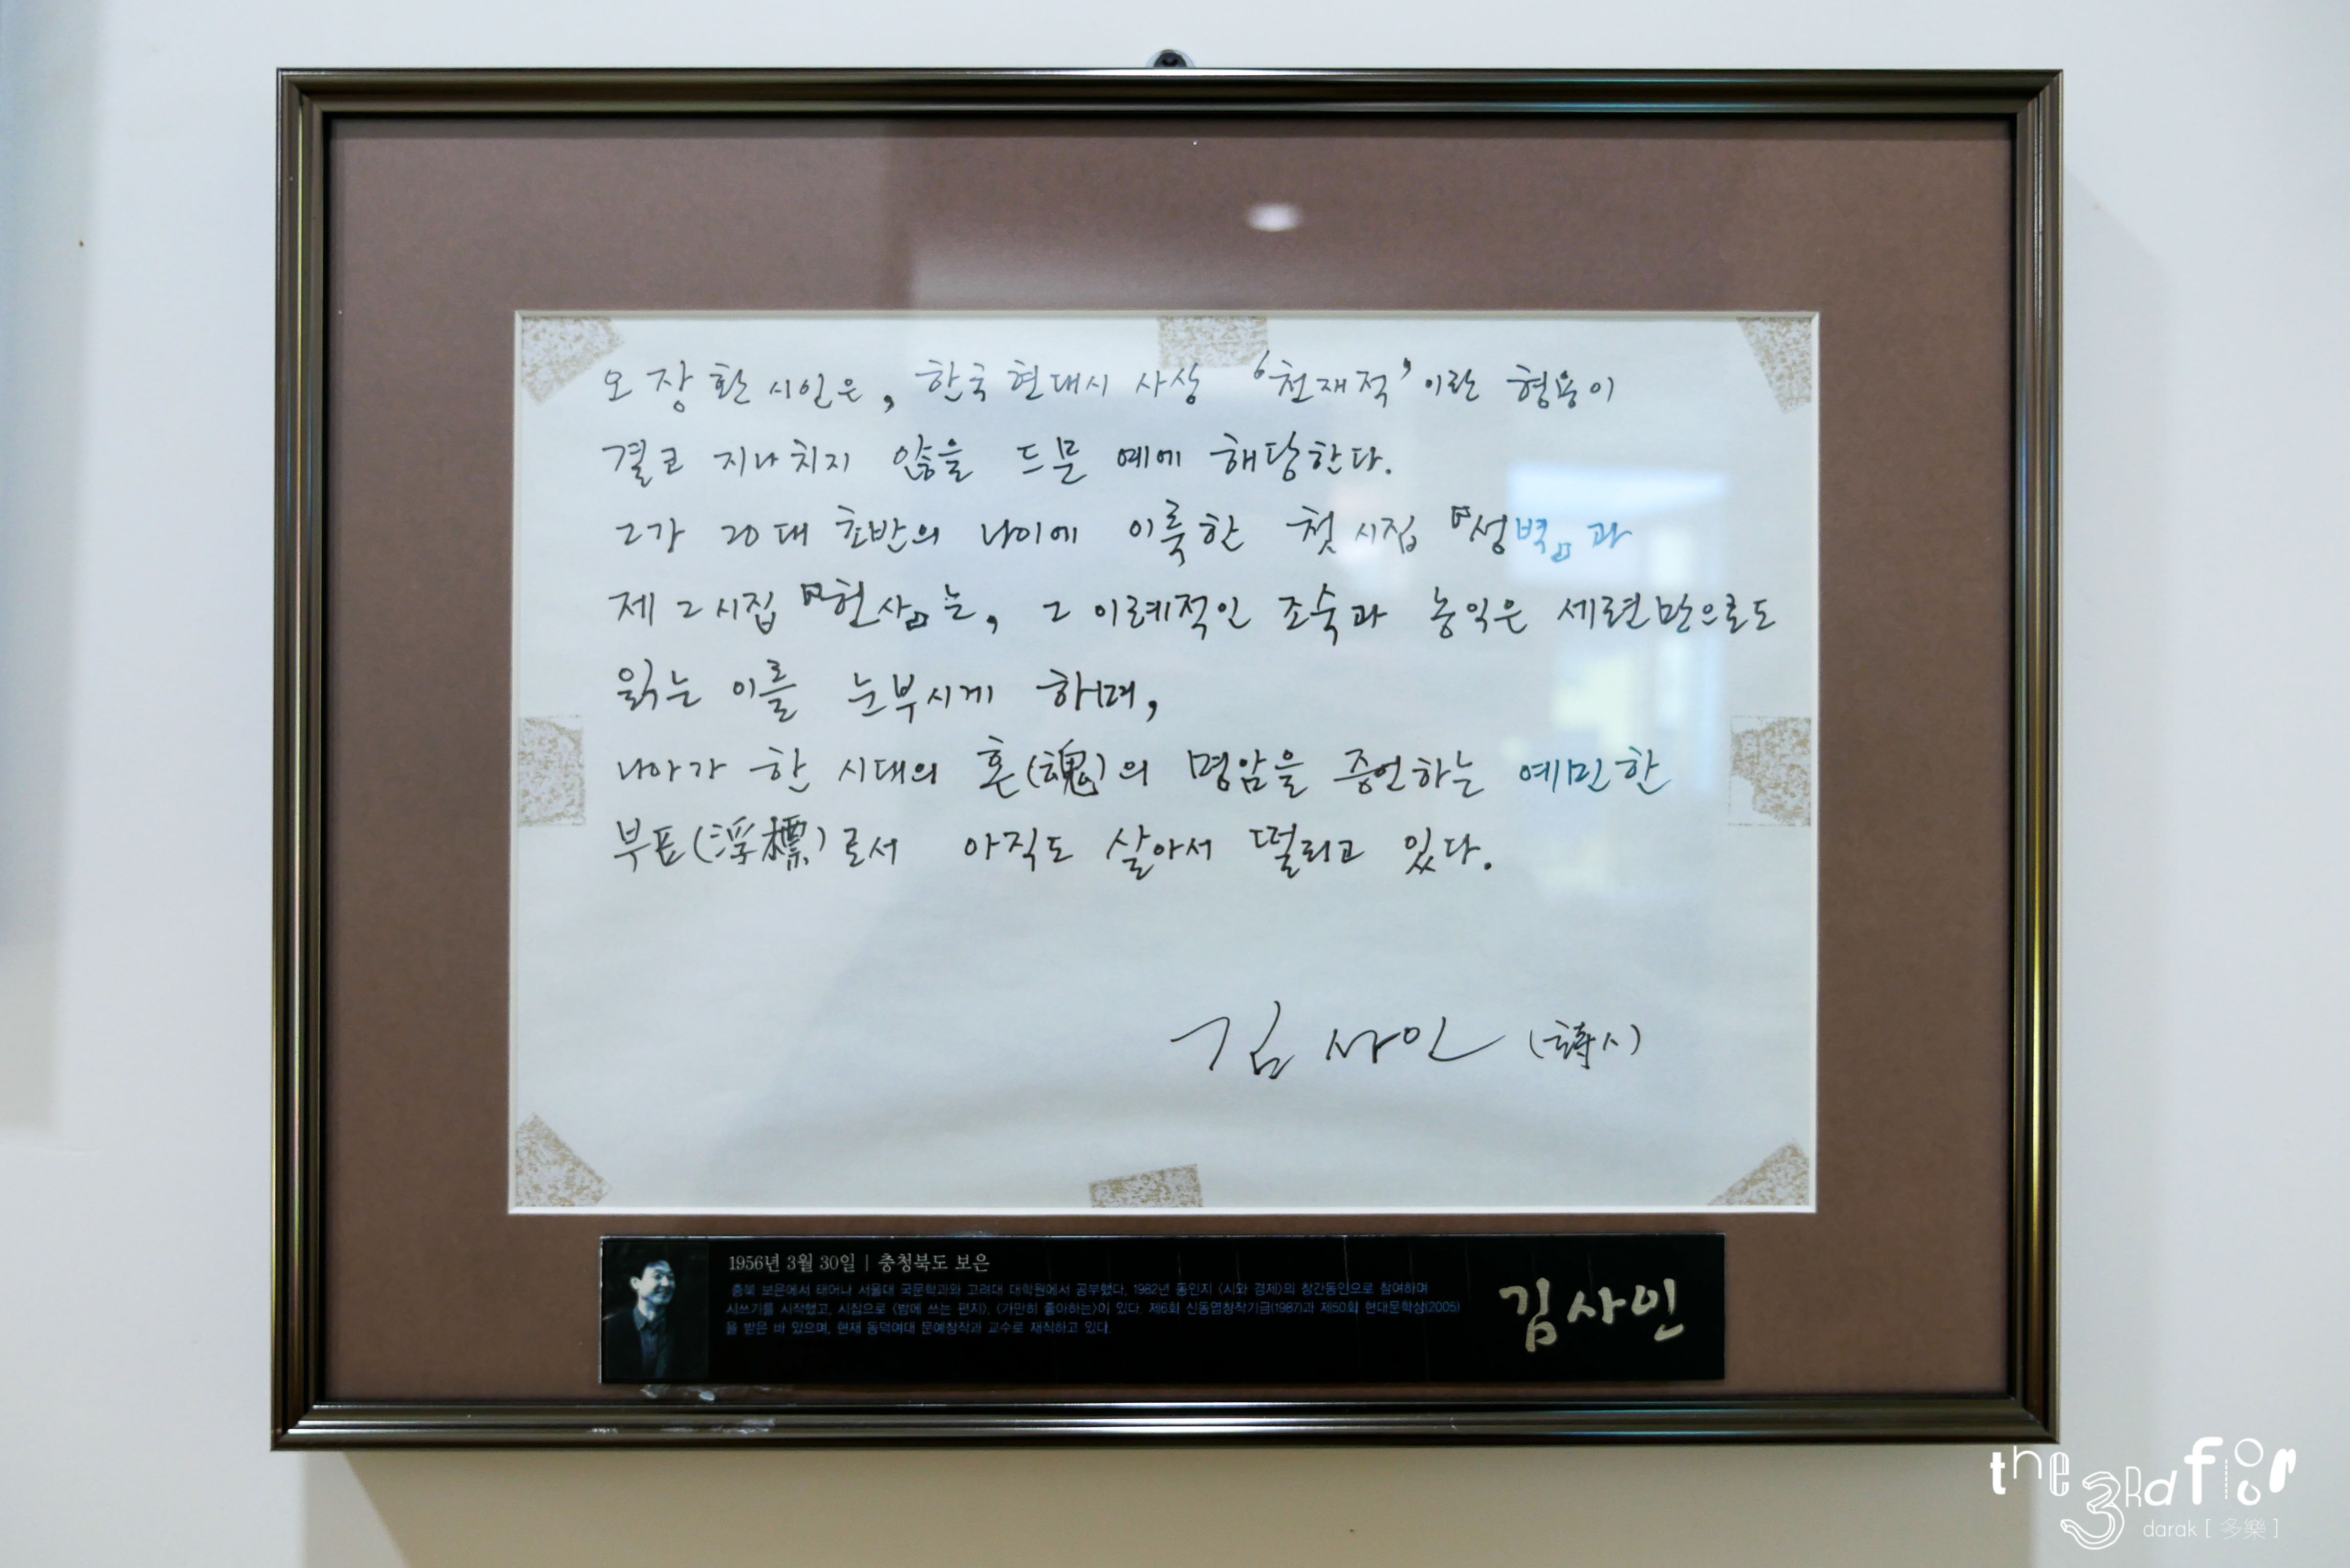 오장환 시인은, 한국현대시 사상 '천재적'이란 형용이
결코 지나치지 않을 드문 예에 해당한다.
그가 20대 초반의 나이에 이룩한 첫 시집 『성벽』과
제2시집 『헌사』는, 그 이례적인 조숙과 농익은 세련만으로도
읽는 이를 눈부시게 하며,
나아가 한 시대의 혼(魂)의 명암을 증언하는 예민한
부표(浮標)로서 아직도 살아서 떨리고 있다.
김사인 (詩人)
1956년 3월 30일 | 충청북도 보은
충북 보은에서 태어나 서울대 국문학과와 고려대 대학원에서 공부했다. 1982년 동인지 <시와 경제>의 창간동인으로 참여하며
시쓰기를 시작했고, 시집으로 <밤에 쓰는 편지>, <가만히 좋아하는>이 있다. 제6회 신동엽창작기금(1987)과 제50회 현대문학상(2005)
을 받은 바 있으며, 현재 동덕여대 문예창작과 교수로 재직하고 있다.
김사인
the 3Rd floor
darak [ 多樂 ]